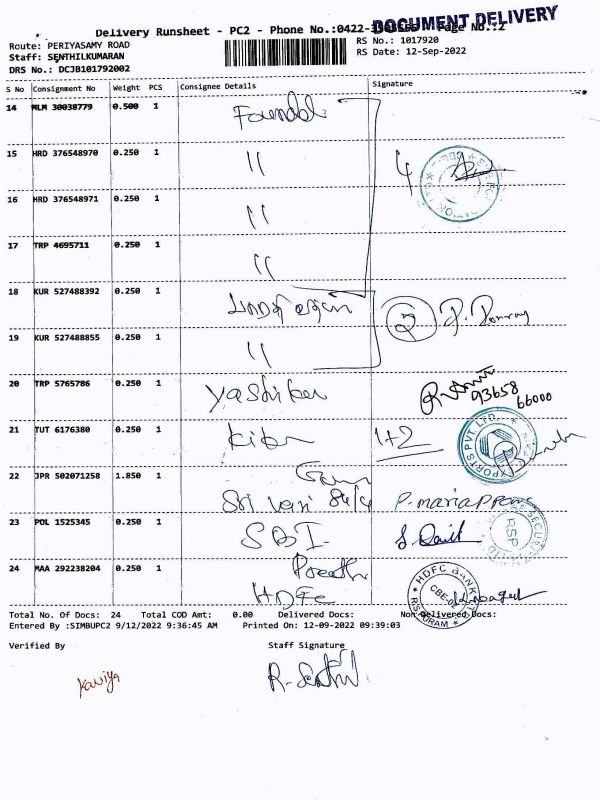 DOCUMENT DELIVERY
Delivery Runsheet - PC2 - Phone No.:0422- Page No.:2
Route: PERIYASAMY ROAD
RS No.: 1017920
Staff: SENTHILKUMARAN
RS Date: 12-Sep-2022
DRS No.: DCJB101792002
S No Consignment No Weight PCS Consignee Details Signature
14 MLM 30038779 0.500 1
15 HRD 376548970 0.250 1 "
16 HRD 376548971 0.250 1 "
17 TRP 4695711 0.250 1 "
18 KUR 527488392 0.250 1 2
19 KUR 527488855 0.250 1 "
20 TRP 5765786 0.250 1 Yashika 93658
66000
21 TUT 6176380 0.250 1 1+2
EXPORTS PVT LTD.
22 JPR 502071258 1.850 1
Sri Vari 84/4 P. mariappan
23 POL 1525345 0.250 1 SBI
RSP
24 MAA 292238204 0.250 1 Preethi
HDFC
HDFC BANK
CBE-
RS PURAM
Total No. Of Docs: 24 Total COD Amt: 0.00 Delivered Docs: Non-Delivered Docs:
Entered By :SIMBUPC2 9/12/2022 9:36:45 AM Printed On: 12-09-2022 09:39:03
Verified By Staff Signature
Kaviya